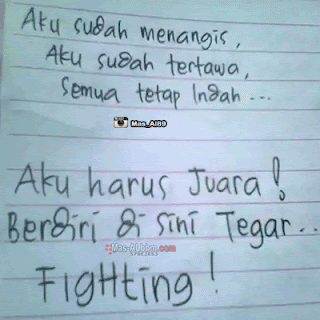 Aku sudah menangis,
Aku sudah tertawa,
Semua tetap Indah...
Mas_Al89
Aku harus Juara!
Berdiri di sini Tegar..
Fighting!